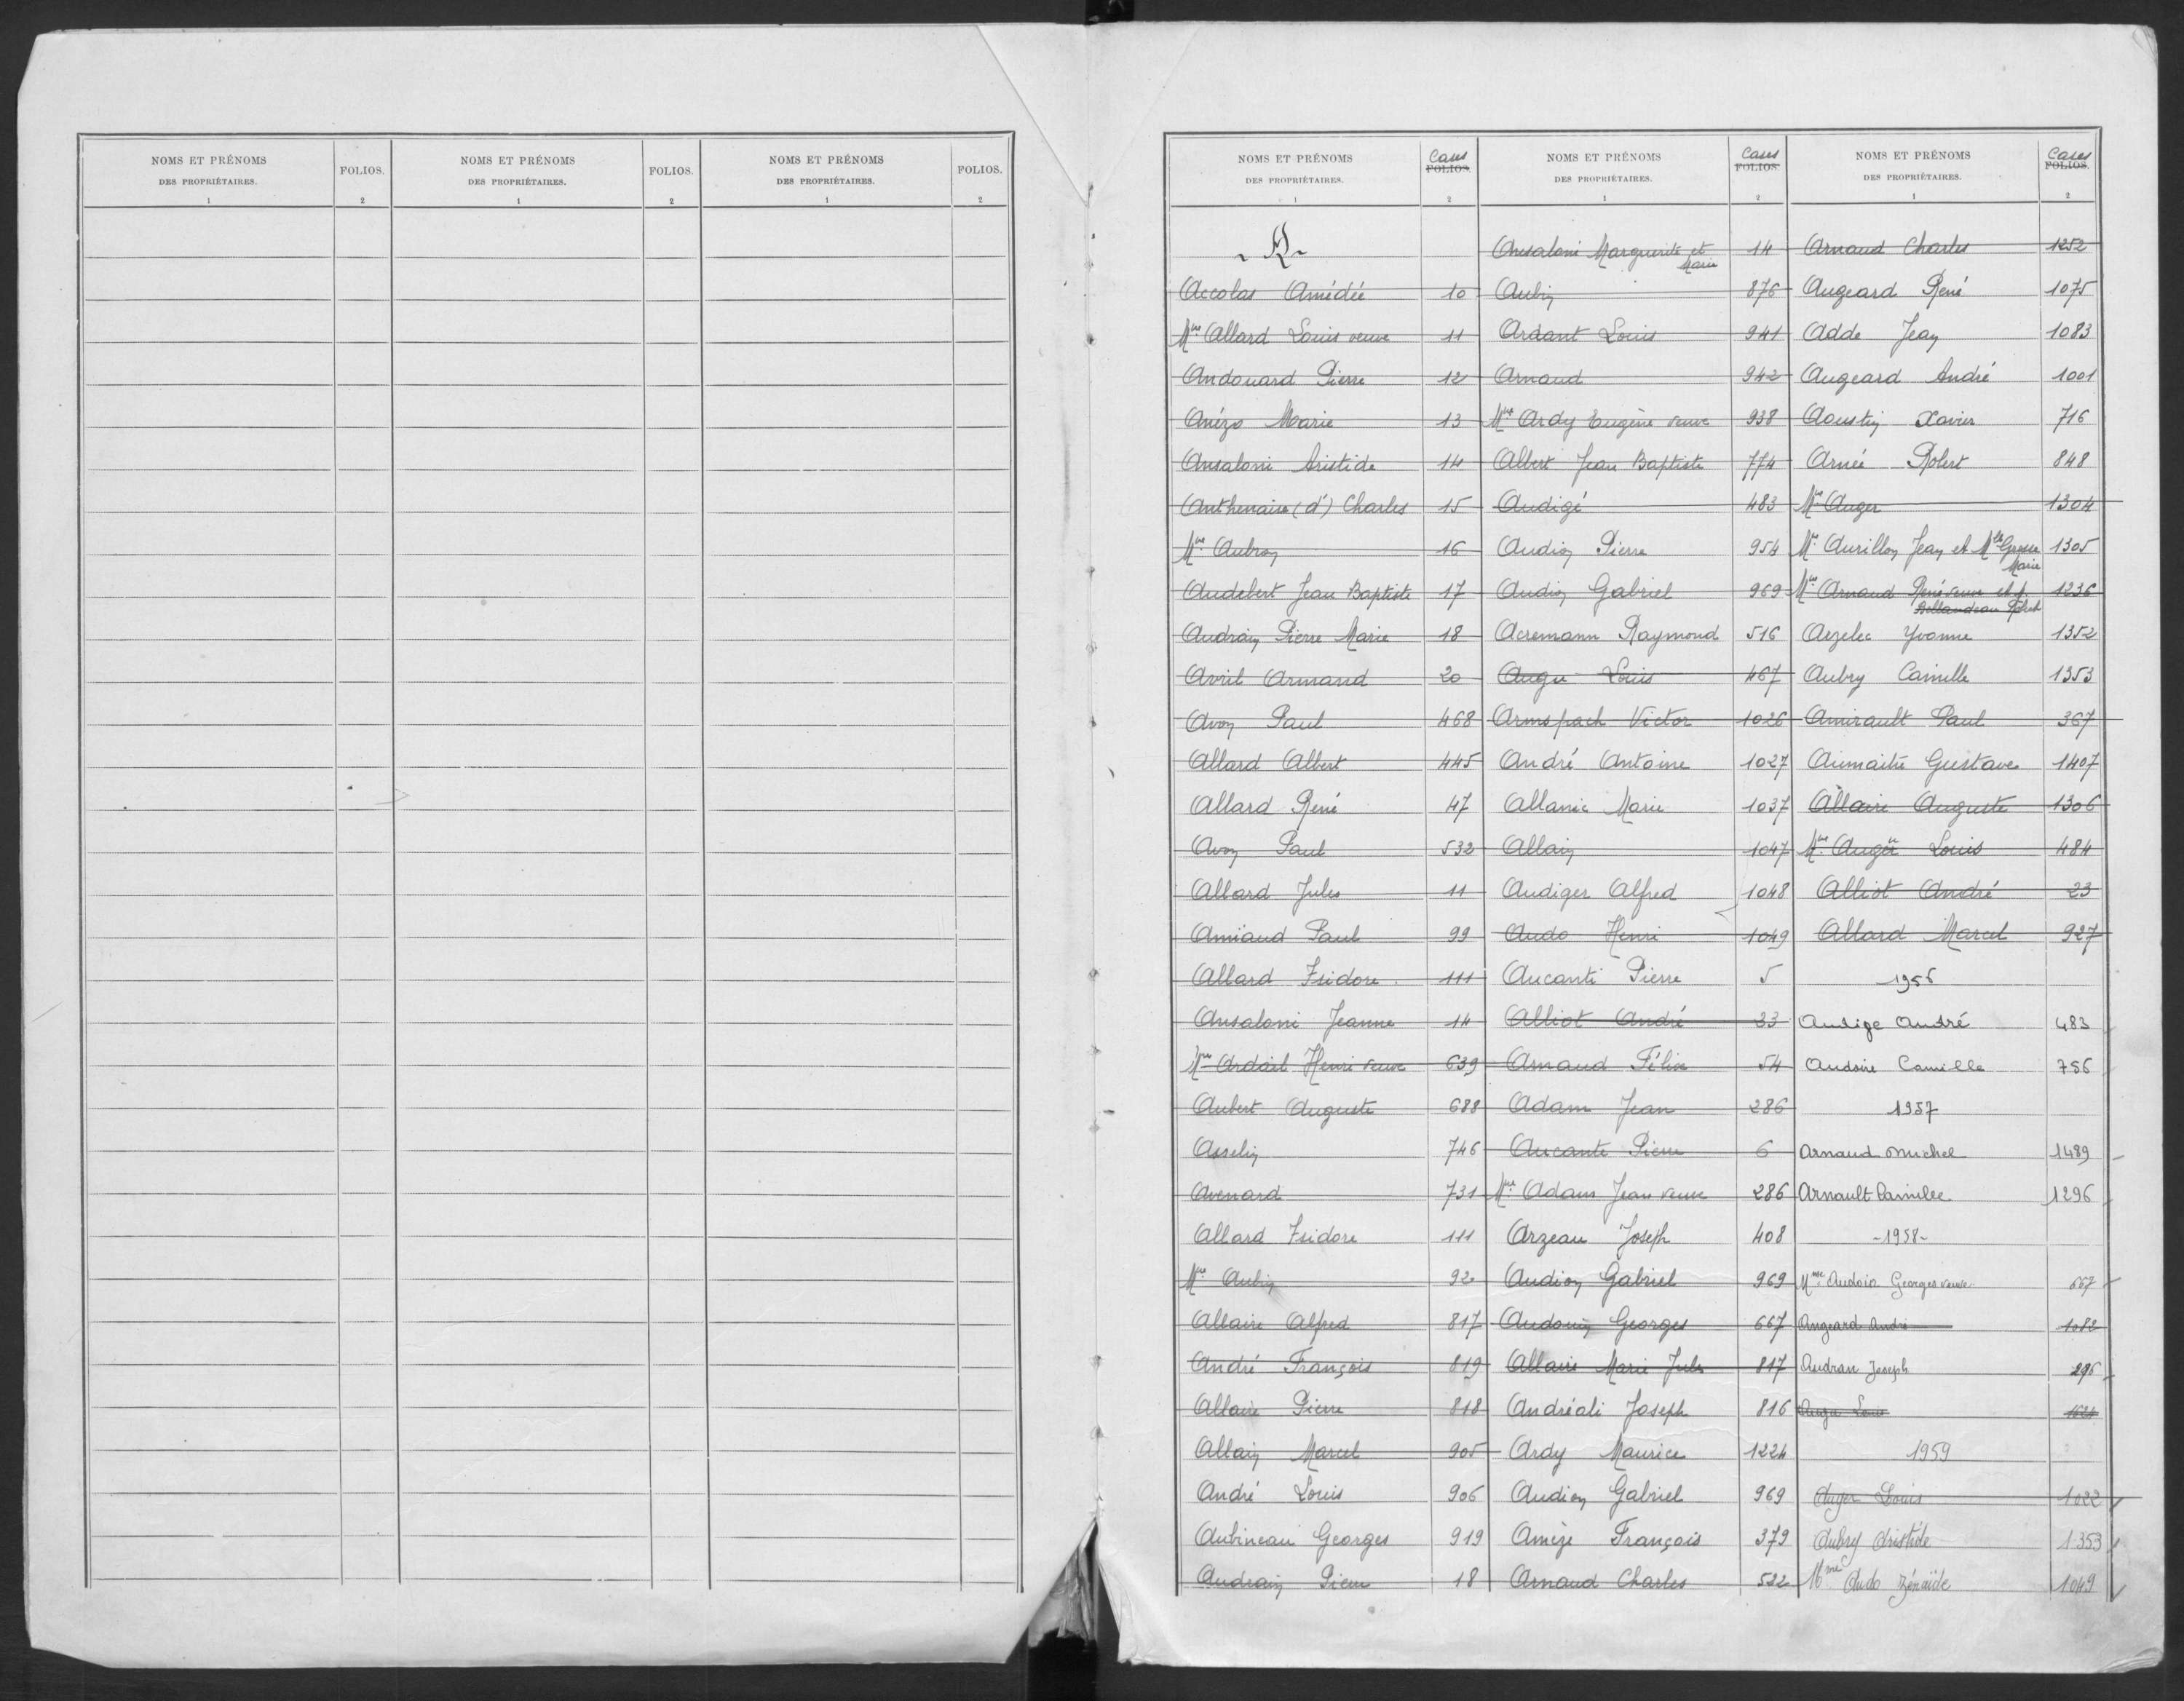 NOMS ET PRÉNOMS DES PROPRIÉTAIRES. FOLIOS. NOMS ET PRÉNOMS DES PROPRIÉTAIRES. FOLIOS. NOMS ET PRÉNOMS DES PROPRIÉTAIRES. FOLIOS.
1 2 1 2 1 2
NOMS ET PRÉNOMS DES PROPRIÉTAIRES. Cases FOLIOS NOMS ET PRÉNOMS DES PROPRIÉTAIRES. Cases FOLIOS NOMS ET PRÉNOMS DES PROPRIÉTAIRES. Cases FOLIOS
1 2 1 2 1 2
- A -
Accolas Amédée 10
Mme Allard Louis veuve 11
Andouard Pierre 12
Anézo Marie 13
Ansaloni Aristide 14
Anthenaise (d') Charles 15
Mme Aubron 16
Audebert Jean Baptiste 17
Audrain Pierre Marie 18
Avril Armand 20
Avon Paul 468
Allard Albert 445
Allard René 47
Avon Paul 532
Allard Jules 11
Amiaud Paul 99
Allard Isidore 111
Ansaloni Jeanne 14
Mme Ardoil Henri veuve 639
Aubert Auguste 688
Asselin 746
Avenard 731
Allard Isidore 111
Mme Aubin 92
Allaire Alfred 817
André François 819
Allaire Pierre 818
Allain Marcel 905
André Louis 906
Aubineau Georges 919
Audrain Pierre 18
Ansaloni Marguerite et Marie 14
Aubin 876
Ardant Louis 941
Arnaud 942
Mme Ardy Eugène veuve 938
Albert Jean Baptiste 774
Audigé 483
Audion Pierre 954
Audion Gabriel 969
Acremann Raymond 516
Augu Louis 467
Armspach Victor 1026
André Antoine 1027
Allanic Marie 1037
Allain 1047
Audiger Alfred 1048
Audo Henri 1049
Aucanti Pierre 5
Alliot André 33
Arnaud Félix 54
Adam Jean 286
Aucante Pierre 6
Mme Adam Jean veuve 286
Arzeau Joseph 408
Audion Gabriel 969
Audouin Georges 667
Allaire Marie Jules 817
Andréoli Joseph 816
Ardy Maurice 1224
Audion Gabriel 969
Amèze François 379
Arnaud Charles 522
Arnaud Charles 1252
Augeard René 1075
Adde Jean 1083
Augeard André 1001
Aoustin Xavier 716
Arnée Robert 848
Mme Auger 1304
Mr Aurillon Jean et Mlle Marie 1305
Mme Arnaud René veuve et 1236
Arzelec Yvonne 1352
Aubry Camille 1353
Amirault Paul 367
Aumaitre Gustave 1407
Allaire Auguste 1306
Mme Augu Louis 484
Alliot André 23
Allard Marcel 927
1956
Audige André 483
Audoire Camille 756
1957
Arnaud Michel 1489
Arnault Camille 1296
- 1958 -
Mme Audoin Georges veuve 667
Angeard André 1082
Audran Joseph 296
Augu Louis
1959
Auger Louis 1022
Aubry Aristide 1353
Mme Audo Zénaïde 1049